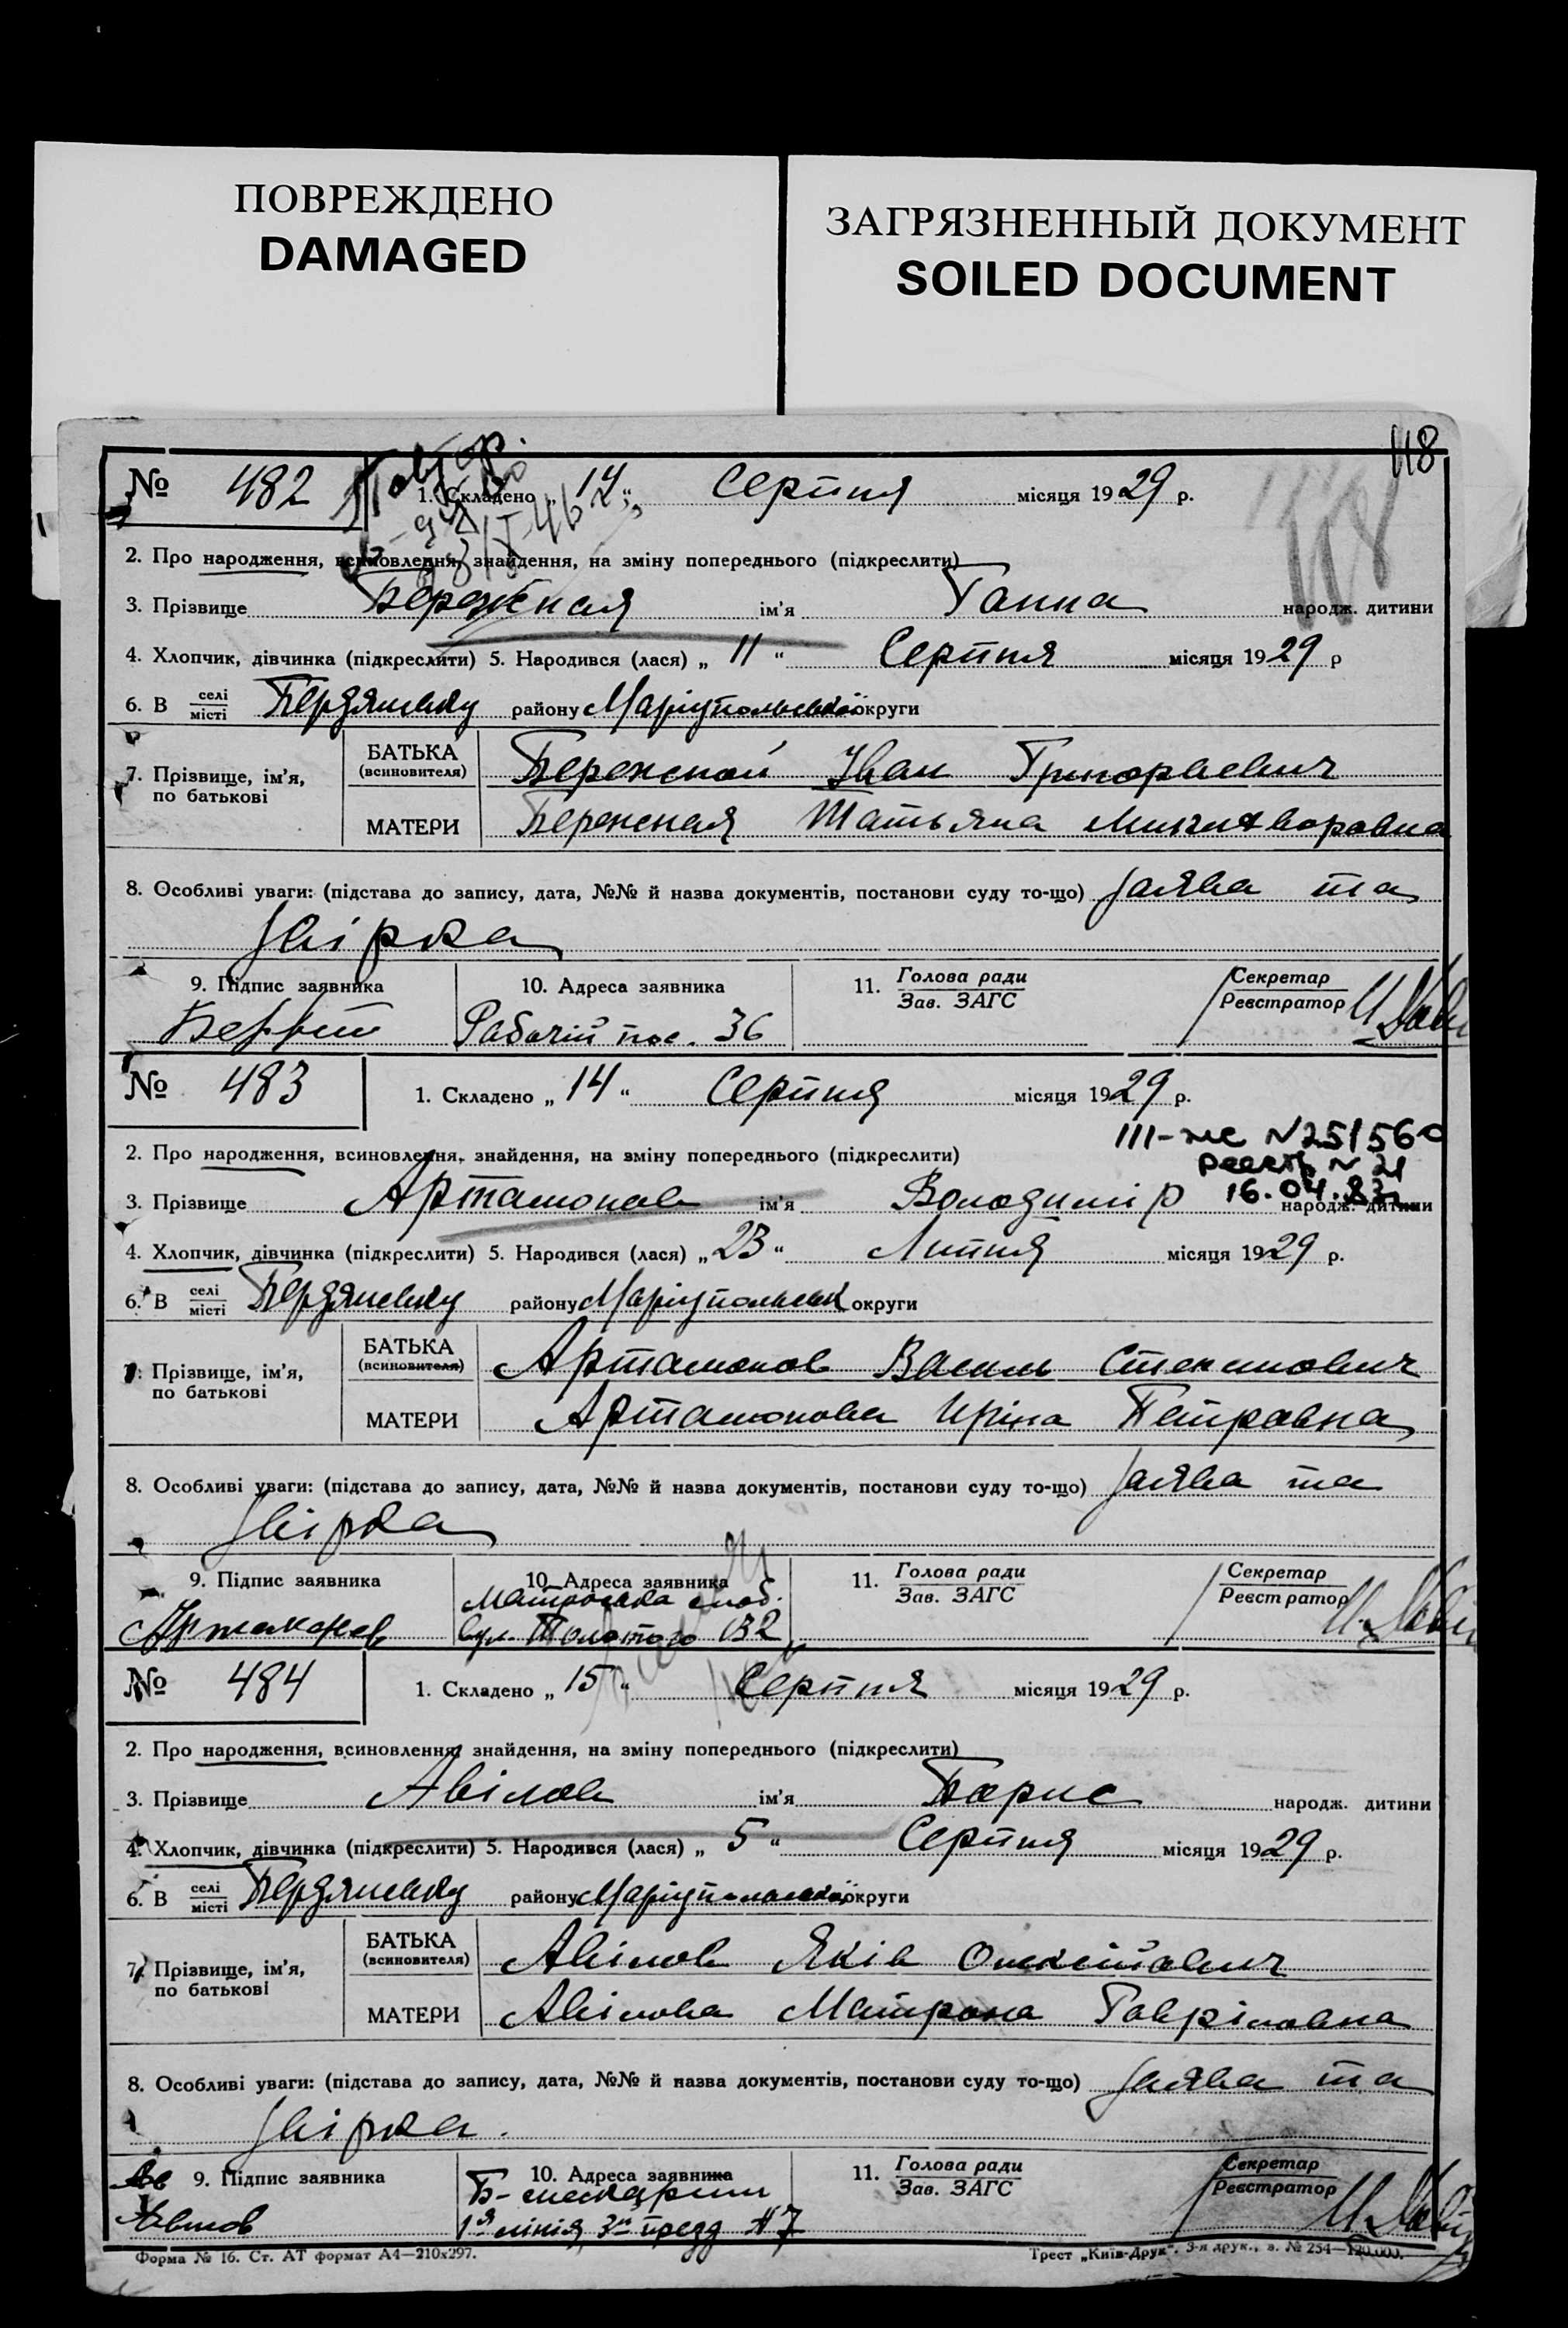 ПОВРЕЖДЕНО
DAMAGED
ЗАГРЯЗНЕННЫЙ ДОКУМЕНТ
SOILED DOCUMENT
118
118
№ 482
1. Складено „ 14 “ Серпня місяця 1929 р.
2. Про народження, всиновлення, знайдення, на зміну попереднього (підкреслити)
3. Прізвище Бережная ім'я Ганна народж. дитини
4. Хлопчик, дівчинка (підкреслити) 5. Народився (лася) „ 11 “ Серпня місяця 1929 р
6. В селі місті Бердянську району Маріупольської округи
7. Прізвище, ім'я, по батькові
БАТЬКА (всиновителя) Бережной Іван Григорьевич
МАТЕРИ Бережная Татьяна
8. Особливі уваги: (підстава до запису, дата, №№ й назва документів, постанови суду то-що) Заява та
звірка
9. Підпис заявника 10. Адреса заявника 11. Голова ради Зав. ЗАГС Секретар Реєстратор
Рабочій пос. 36
№ 483
1. Складено „ 14 “ Серпня місяця 1929 р.
III-жс N251560
реестр N 21
16.04.83
2. Про народження, всиновлення, знайдення, на зміну попереднього (підкреслити)
3. Прізвище Артамонов ім'я Володимір народж. дитини
4. Хлопчик, дівчинка (підкреслити) 5. Народився (лася) „ 23 “ Липня місяця 1929 р.
6. В селі місті Бердянську району Маріупольськ округи
7. Прізвище, ім'я, по батькові
БАТЬКА (всиновителя) Артамонов Василь
МАТЕРИ Артамонова Иріна Петровна
8. Особливі уваги: (підстава до запису, дата, №№ й назва документів, постанови суду то-що) Заява та
звірка
9. Підпис заявника 10. Адреса заявника 11. Голова ради Зав. ЗАГС Секретар Реєстратор
Матроська слоб.
Артамонов вул. Толстого 132
№ 484
1. Складено „ 15 “ Серпня місяця 1929 р.
2. Про народження, всиновлення, знайдення, на зміну попереднього (підкреслити)
3. Прізвище Авілов ім'я Борис народж. дитини
4. Хлопчик, дівчинка (підкреслити) 5. Народився (лася) „ 5 “ Серпня місяця 1929 р.
6. В селі місті Бердянську району Маріупольської округи
7. Прізвище, ім'я, по батькові
БАТЬКА (всиновителя) Авілов Яків Олексійович
МАТЕРИ Авілова Матрона Гавріловна
8. Особливі уваги: (підстава до запису, дата, №№ й назва документів, постанови суду то-що) Заява та
звірка.
9. Підпис заявника 10. Адреса заявника 11. Голова ради Зав. ЗАГС Секретар Реєстратор
1я лінія, 3й проезд № 7
Форма № 16. Ст. АТ формат А4—210x297.
Трест „Київ-Друк“. 3-я друк., з. № 254—120.000.